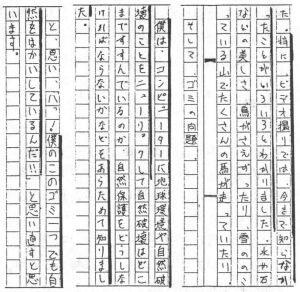 た。特に、ビデオ撮りでは、今まで知らなか
ったことがいろいろとわかりました。氷や万
ないの美しさ、鳥がさえずったり、雪ののこ
っている山でたくさんの馬が走っていたり、
そして、ゴミの問題。
僕は、コンピューターに地球環境や自然破
壊のことをして自然破壊はどこ
まですすんでいるのか、自然保護をどうしな
ければならないかなどをあらためて知りまし
た。
と、思い、ハッ！僕のこのゴミ一つでも自
然をはかいしているんだ!!」と思い直すと思
います。